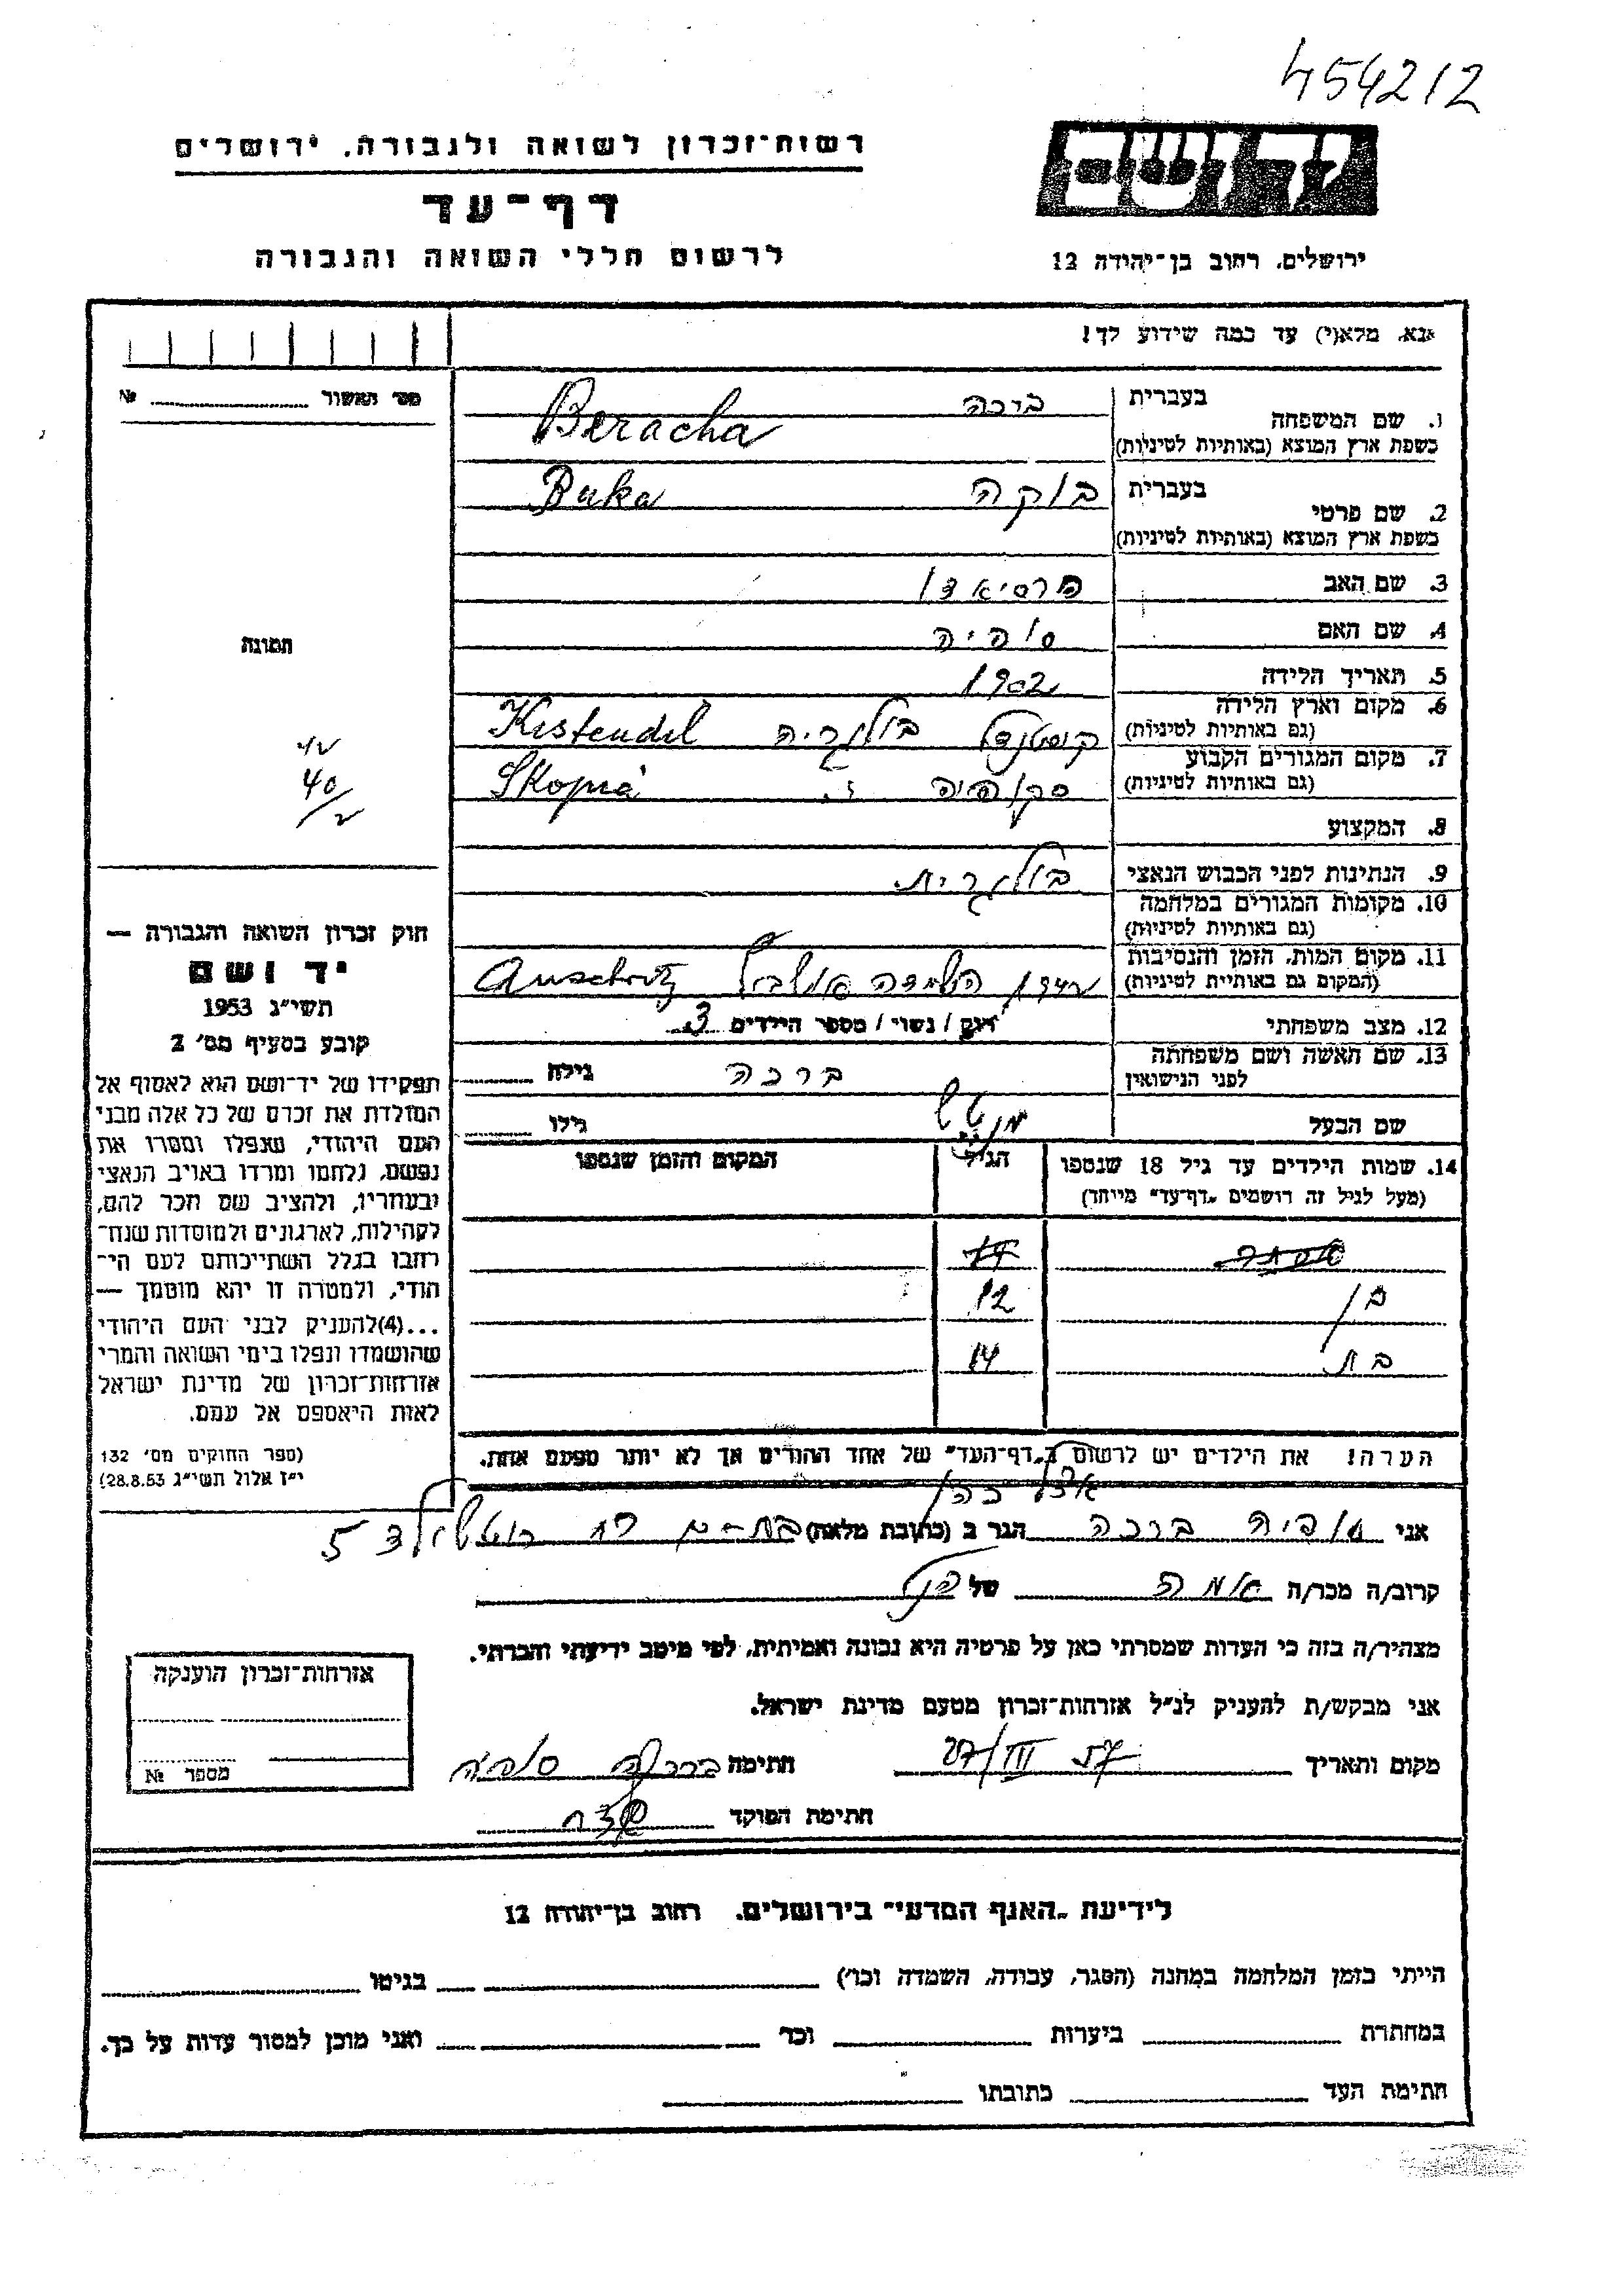 454212
רשות־זכרון לשואה ולגבורה. ירושלים
דף־עד
לרשום חללי השואה והגבורה
יד ושם
ירושלים. רחוב בן־יהודה 12
אנא. מלא(י) עד כמה שידוע לך!
מס׳ האשור №
1. שם המשפחה בעברית ברכה
בשפת ארץ המוצא (באותיות לטיניות) Beracha
2. שם פרטי בעברית בוקה Buka
בשפת ארץ המוצא (באותיות לטיניות)
3. שם האב פרסיאדו
4. שם האם סופיה
5. תאריך הלידה 1902
6. מקום וארץ הלידה (גם באותיות לטיניות) קוסטנדל בולגריה Kistendil
7. מקום המגורים הקבוע (גם באותיות לטיניות) סקופיה Skopia
8. המקצוע
9. הנתינות לפני הכבוש הנאצי בולגרית.
10. מקומות המגורים במלחמה (גם באותיות לטיניות)
11. מקום המות. הזמן והנסיבות (המקום גם באותיות לטיניות) השמדה Auschvitz
12. מצב משפחתי רווק / נשוי / מספר הילדים 3
13. שם האשה ושם משפחתה לפני הנישואין ברכה גילה
שם הבעל גילו
14. שמות הילדים עד גיל 18 שנספו הגיל המקום והזמן שנספו
(מעל לגיל זה רושמים „דף־עד״ מיוחד)
בן 12
בת 14
הערה! את הילדים יש לרשום ב„דף־העד״ של אחד ההורים אך לא יותר מפעם אחת.
תמונה
40
חוק זכרון השואה והגבורה —
יד ושם
תשי״ג 1953
קובע בסעיף מס׳ 2
תפקידו של יד־ושם הוא לאסוף אל
המולדת את זכרם של כל אלה מבני
העם היהודי, שנפלו ומסרו את
נפשם, נלחמו ומרדו באויב הנאצי
ובעוזריו, ולהציב שם וזכר להם,
לקהילות, לארגונים ולמוסדות שנח־
רבו בגלל השתייכותם לעם הי־
הודי, ולמטרה זו יהא מוסמך —
...(4)להעניק לבני העם היהודי
שהושמדו ונפלו בימי השואה והמרי
אזרחות־זכרון של מדינת ישראל
לאות היאספם אל עמם.
(ספר החוקים מס׳ 132
י״ז אלול תשי״ג 28.8.53)
אצל כהן
אני סופיה ברכה הגר ב (כתובת מלאה) בת-ים רח רוטשילד 5
קרוב/ה מכר/ה אמה של הנ״ל
מצהיר/ה בזה כי העדות שמסרתי כאן על פרטיה היא נכונה ואמיתית, לפי מיטב ידיעתי והכרתי.
אני מבקש/ת להעניק לנ״ל אזרחות־זכרון מטעם מדינת ישראל.
מקום ותאריך 27/III 57 חתימה ברכה סופיה
חתימת הפוקד
אזרחות־זכרון הוענקה
מספר №
לידיעת „האגף המדעי״ בירושלים. רחוב בן־יהודה 12
הייתי בזמן המלחמה במחנה (הסגר, עבודה, השמדה וכו׳) בגיטו
במחתרת ביערות וכו׳ ואני מוכן למסור עדות על כך.
חתימת העד כתובתו